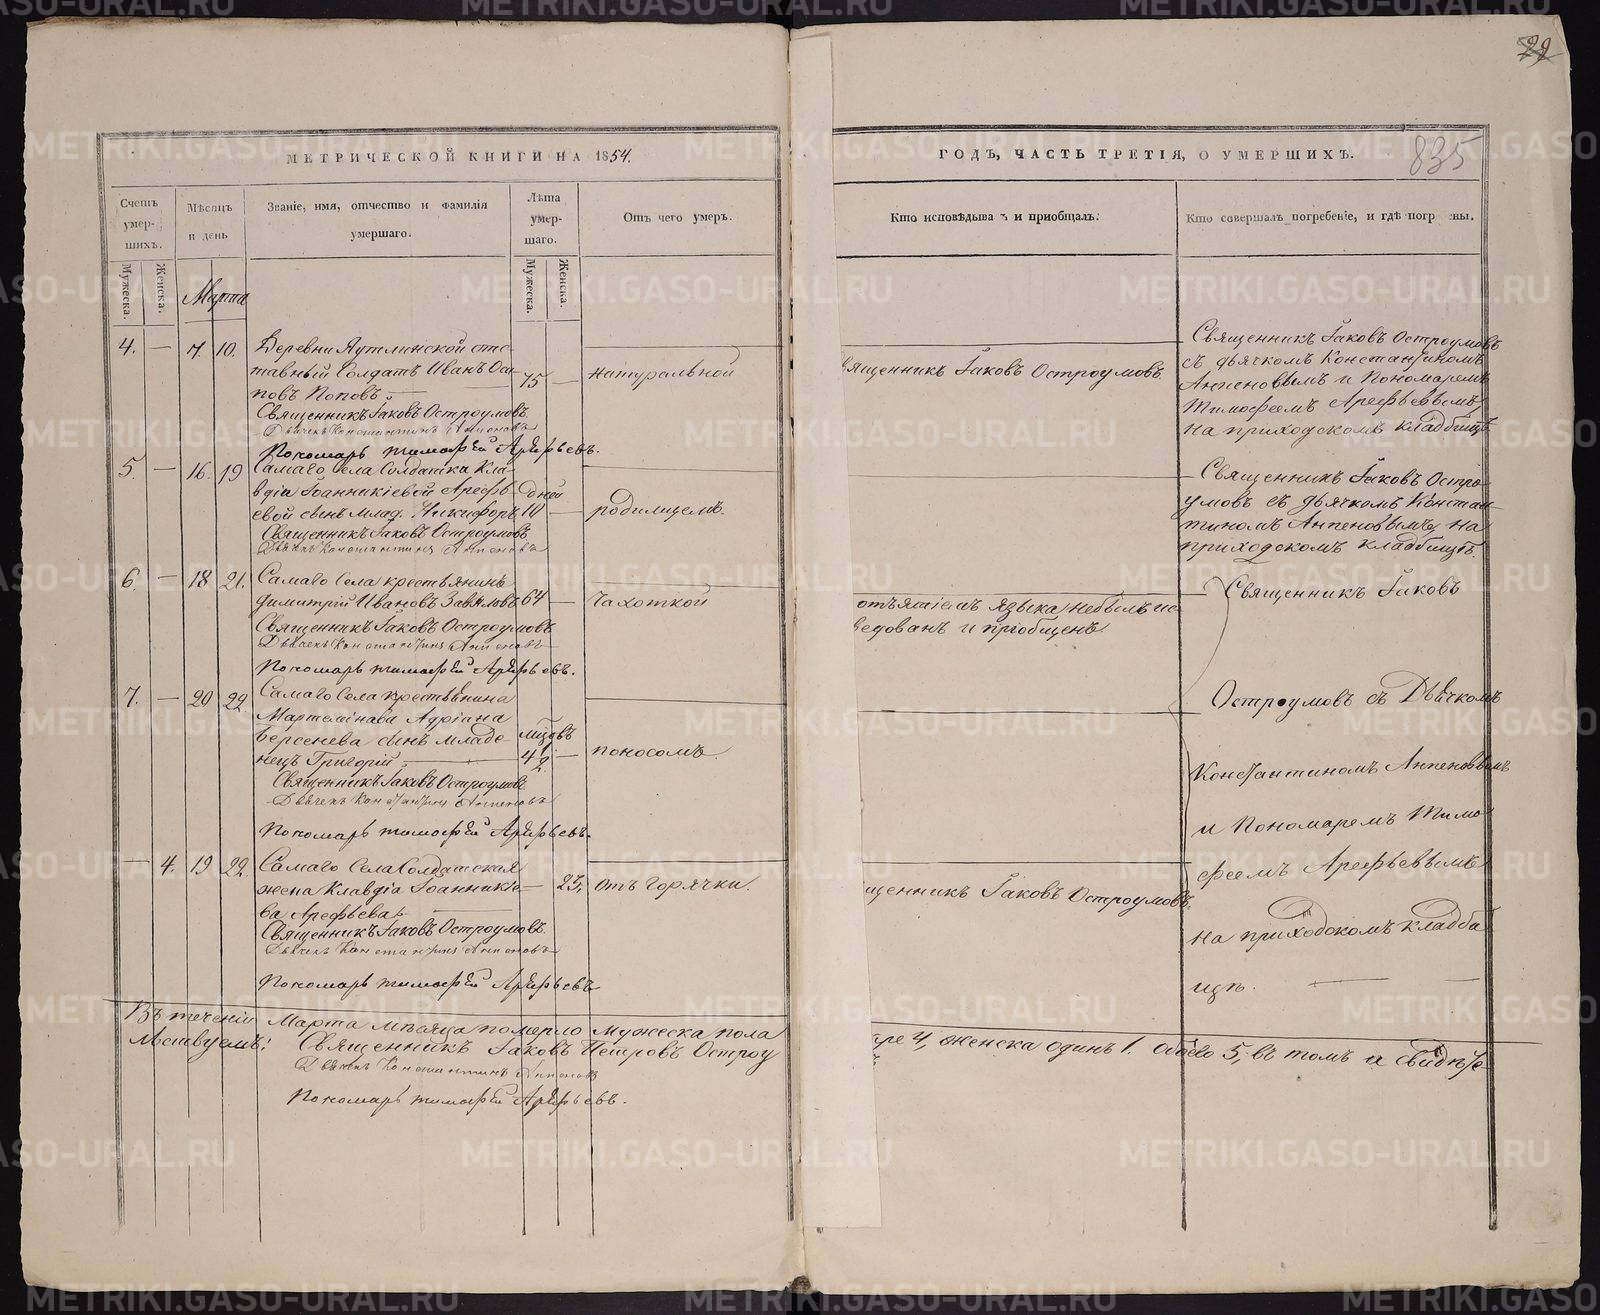 МЕТРИЧЕСКОЙ КНИГИ НА 1854.
Счетъ умер-шихъ.
Мѣсяцъ и день
Званіе, имя, отчество и фамилія умершаго.
Лѣта умер-шаго.
Отъ чего умеръ.
Мужеска.
Женска.
Мужеска.
Женска.
Марта
4. — 7. 10. Деревни Аутлинской отс-
тавный Солдатъ Иванъ Оси
повъ Поповъ — 75 — натуральной
Священникъ Іаковъ Остроумовъ
Дьячекъ Константинъ
Пономарь Тимофей Арефьевъ.
5. — 16. 19 Самаго Села Солдатка Кла-
вдіа Іоанникіевой Арефь дней
евой сынъ млад. Никифоръ 10 — родимцемъ.
Священникъ Іаковъ Остроумовъ
Дьячекъ Константинъ
6. — 18 21. Самаго Села крестьянинъ
Димитрій Ивановъ Завяловъ 64 — Чахоткой
Священникъ Іаковъ Остроумовъ
Дьячекъ Константинъ
Пономарь Тимофей Арефьевъ.
7. — 20 22. Самаго Села крестьянина
Адріана
Берсенева сынъ младе
нецъ Григорій — поносомъ
Священникъ Іаковъ Остроумовъ
Дьячекъ Константинъ
Пономарь Тимофей Арефьевъ.
— 4. 19 22. Самаго Села Солдатская
жена Клавдіа Іоанникіе — 23, отъ горячки.
ва Арефьева
Священникъ Іаковъ Остроумовъ
Дьячекъ Константинъ
Пономарь Тимофей Арефьевъ
Въ теченіи Марта мѣсяца померло мужеска пола
Священникъ Іаковъ Петровъ Остроу
Дьячекъ Константинъ
Пономарь Тимофей Арефьевъ.
835
ГОДЪ, ЧАСТЬ ТРЕТІЯ, О УМЕРШИХЪ.
Кто исповѣдыва ъ и пріобщалъ.
Кто совершалъ погребеніе, и гдѣ погр ены.
вященникъ Іаковъ Остроумовъ
Священникъ Іаковъ Остроумовъ
съ дьячкомъ Константиномъ
и Пономаремъ
Тимофеемъ Арефьевымъ,
на приходскомъ кладбищѣ
Священникъ Іаковъ Остро-
умовъ съ дьячкомъ Констан-
тиномъ на
приходскомъ кладбищѣ.
отъятіемъ языка небылъ ис
ведованъ и пріобщенъ.
Священникъ Іаковъ
Остроумовъ съ Дьячкомъ
Константиномъ
и Пономаремъ Тимо
феемъ Арефьевымъ
щенникъ Іаковъ Остроумовъ.
на приходскомъ кладби
щѣ.
ре 4, женска одинъ 1. обоего 5, въ томъ и свидѣте
METRIKI.GASO-URAL.RU